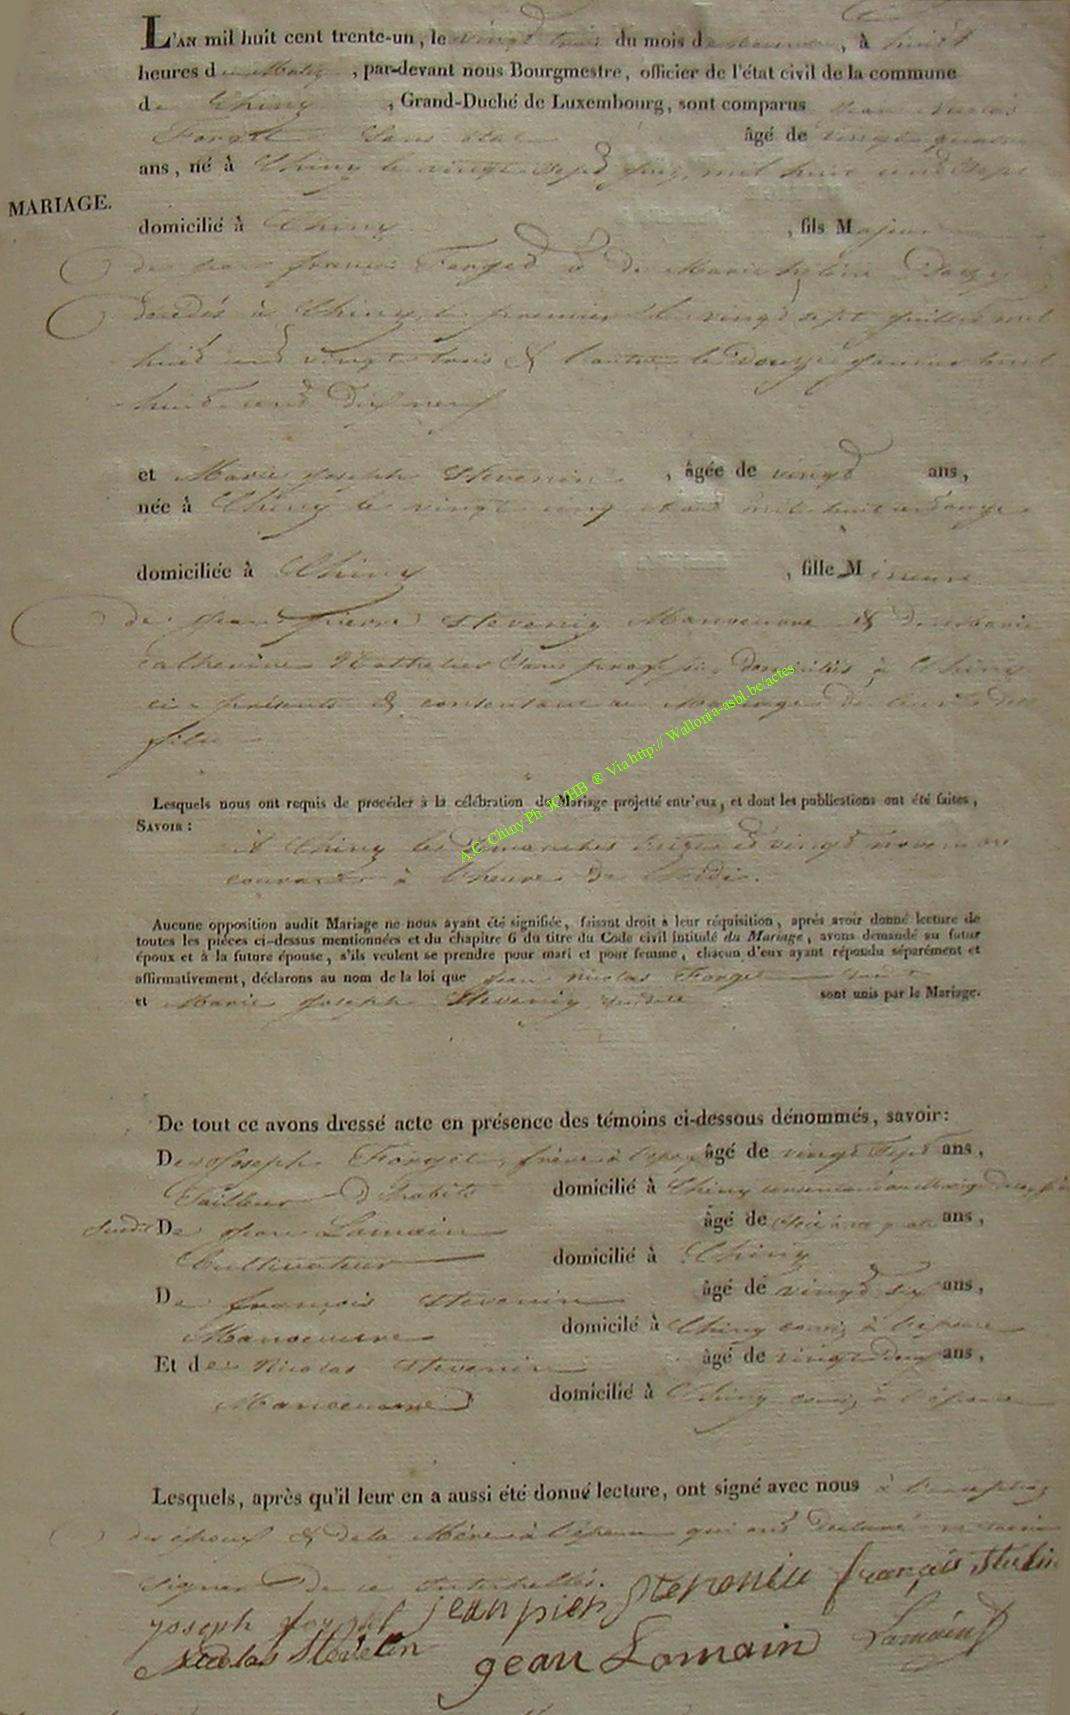 L'AN mil huit cent trente-un, le vingt trois du mois de novembre, à huit
heures du Matin, par-devant nous Bourgmestre, officier de l'état civil de la commune
de Chiny, Grand-Duché de Luxembourg, sont comparus Jean Nicolas
Forget Sans état âgé de vingt quatre
ans, né à Chiny le vingt sept mil huit cent sept
MARIAGE.
domicilié à Chiny, fils Majeur
de françois Forget & de Marie
décédés à Chiny, le premier le vingt sept juillet mil
huit cent vingt trois & l'autre le douze janvier mil
huit cent dix neuf
et Marie Joseph Stevenin, âgée de vingt ans,
née à Chiny le vingt cinq mil huit cent onze
domiciliée à Chiny, fille Mineure
de Jean pierre Stevenin Manoeuvre & de Marie
catherine Sans profession domiciliés à Chiny
ci présents & consentant au Mariage de leur
fille
Lesquels nous ont requis de procéder à la célébration du Mariage projetté entr'eux, et dont les publications ont été faites,
SAVOIR :
A Chiny les dimanches treize et vingt novembre
courant à l'heure de Midi.
Aucune opposition audit Mariage ne nous ayant été signifiée, faisant droit à leur réquisition, après avoir donné lecture de
toutes les pièces ci-dessus mentionnées et du chapitre 6 du titre du Code civil intitulé du Mariage, avons demandé au futur
époux et à la future épouse, s'ils veulent se prendre pour mari et pour femme, chacun d'eux ayant répondu séparément et
affirmativement, déclarons au nom de la loi que Jean Nicolas Forget susdit
et Marie Joseph Stevenin susdite sont unis par le Mariage.
De tout ce avons dressé acte en présence des témoins ci-dessous dénommés, savoir:
De Joseph Forget, frère à l'époux âgé de vingt sept ans,
Tailleur d'habits domicilié à Chiny consentant au Mariage
susdit De Jean Lamain âgé de ans,
Cultivateur domicilié à Chiny
De françois Stevenin âgé de vingt six ans,
Manoeuvre domicilé à Chiny cousin à l'épouse
Et de Nicolas Stevenin âgé de vingt deux ans,
Manoeuvre domicilié à Chiny cousin à l'épouse
Lesquels, après qu'il leur en a aussi été donné lecture, ont signé avec nous à l'exception
des époux & de la Mère à l'épouse qui ont déclaré ne savoir
signer de ce interpellés.
joseph forget jean pier Stevenin françois Stevenin
Nicolas Stevenin jean Lamain
A.C. Chiny Ph JC/HB ® Via http:// Wallonia-asbl.be/actes